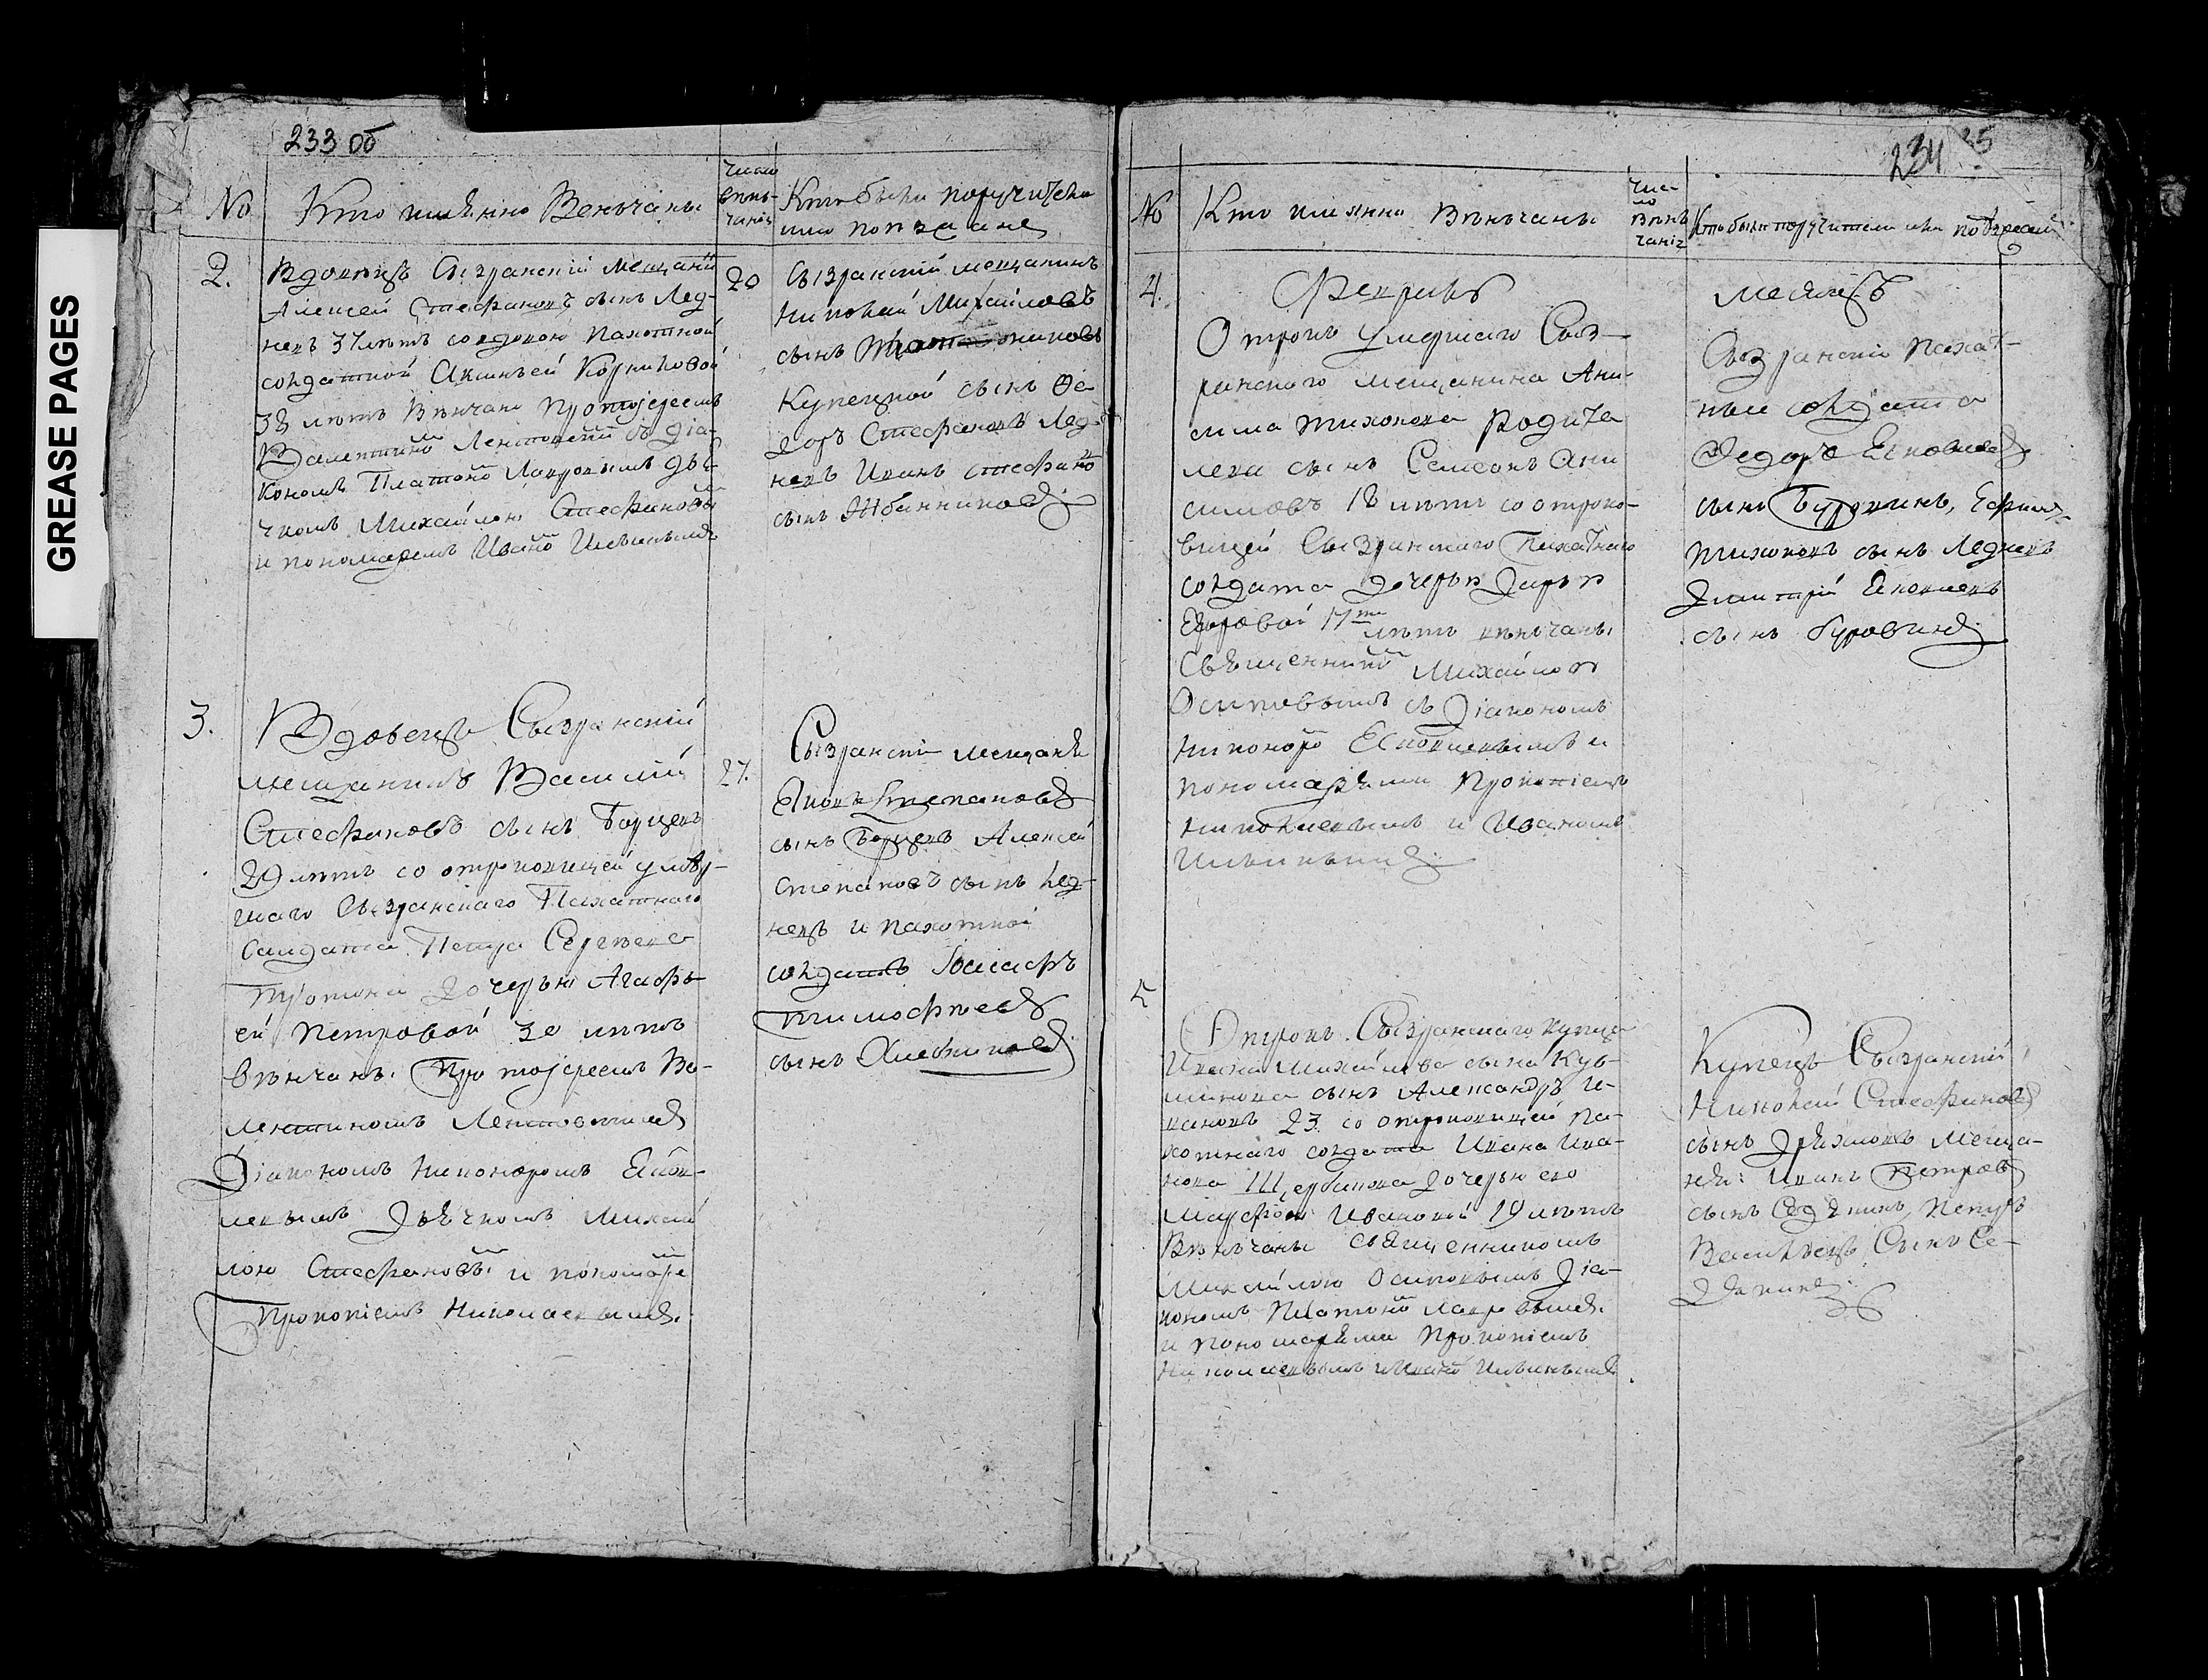 GREASE PAGES
233 об
№
Кто имянно Венчаны
число
венъ-
чанія
Кто были поручители
или поезжане
2.
Вдовецъ Сызранскій мещанинъ
Алексей Стефановъ сынъ Лед-
невъ 37 летъ со вдовою пахотной
солдаткой Аксиньей Корниловой
38 летъ Венчаны Протоіереемъ
Валентино Лентовски съ діа-
кономъ Платоно Лавровымъ дьѣ-
чкомъ Михайлою Стефановы
и пономаремъ Ивано Ильинымъ
20
Сызранскій мещанинъ
Николай Михайловъ
сынъ
Купецкой сынъ Фе-
доръ Стефановъ Лед-
невъ Иванъ Стефано
сынъ Жбанниковъ
3.
Вдовецъ Сызранскій
мещанинъ Василій
Стефановъ сынъ Борцевъ
29 летъ со отроковицей умер-
шаго Сызранскаго Пахатнаго
Салдата Петра Сергеева
дочерью Агафь-
ей Петровой 30 летъ
венчаны Протоіереемъ Ва-
лентиномъ Лентовскимъ
Діакономъ Никоноромъ Яков-
левымъ Дьѣчкомъ Михай
лою Стефановы и пономаре
Прокопіемъ Николаевымъ.
27.
Сызранскіи мещане
Яковъ Степановъ
сынъ Борцевъ Алексей
Степановъ сынъ Лед-
невъ и пахотной
солдатъ
Тимофеевъ
сынъ Хлебниковъ
234 35
№
Кто имянно Венчаны
Чис-
ло
венъ
чанія
Кто были поручители или поезжани
4.
Февраль
месяцъ
Отрокъ умершаго Сыз-
ранскаго мещанина Ани-
сима Тихонова Родите
лева сынъ Семеонъ Ани
симовъ 18 летъ со отроко-
вицей Сызранскаго Пахатнаго
солдата дочерью Дарьею
Егоровой 17ти летъ венчаны
Священнико Михайлою
Осиповымъ съ Діакономъ
Никоноро Яковлевымъ и
пономарями Прокопіемъ
Николаевымъ и Иваномъ
Ильинымъ
Сызранскіи пахат-
ныи солдата
Федоръ Яковлевъ
сынъ Буровинъ, Ефимъ
Тихоновъ сынъ Ледневъ
Дмитрій Яковлевъ
сынъ Буровинъ
5
Отрокъ Сызранскаго купца
Ивана Михайлова сына Кузь-
минова сынъ Александръ И-
вановъ 23 со отроковицей па-
хотнаго солдата Ивана Ива-
нова Щербакова дочерью ево
Марфою Ивановой 19 летъ
Венчаны священникомъ
Михайлою Осиповымъ Діа-
кономъ Платоно Лавровымъ
и пономарями Прокопіемъ
Николаевымъ и Ивано Ильинымъ
Купецъ Сызранскій
Николай Стефановъ
сынъ меща-
не: Иванъ Петровъ
сынъ Седякинъ, Петръ
Васильевъ Сынъ Се-
дякинъ